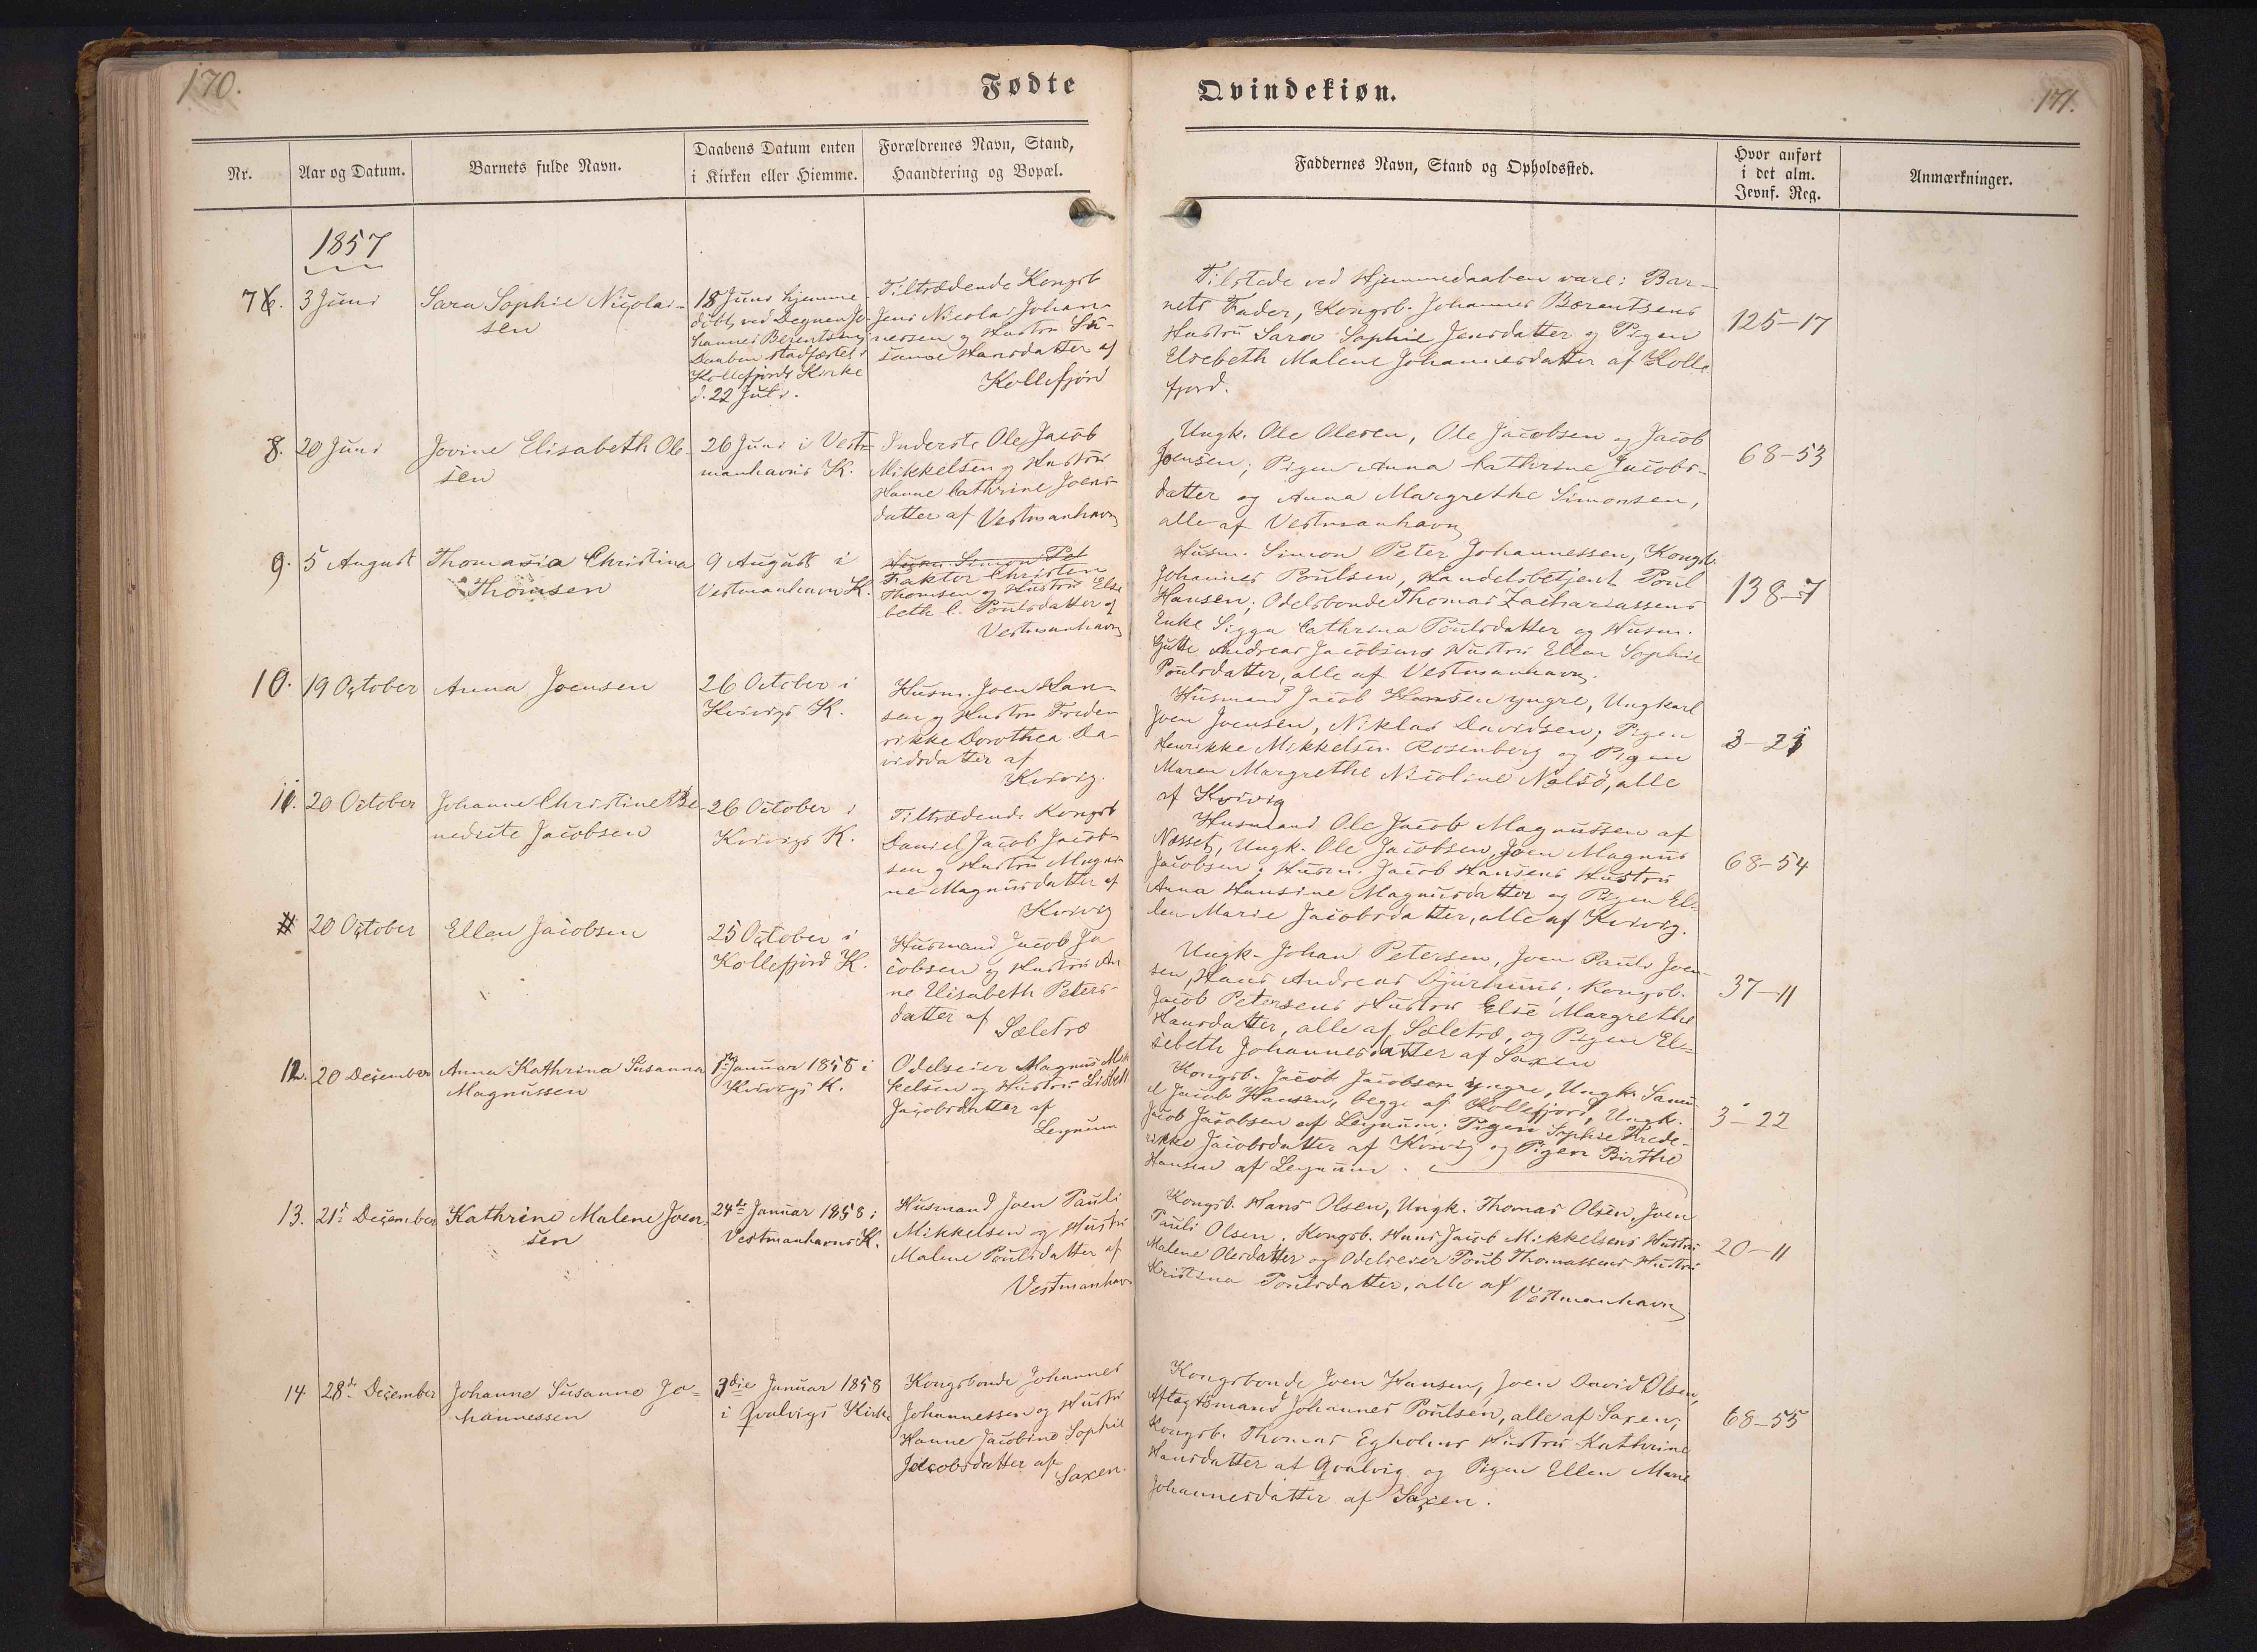 170.
Fødte
Nr.
Aar og Datum.
Barnets fulde Navn.
Daabens Datum enten
i Kirken eller Hiemme.
Forældrenes Navn, Stand,
Haandtering og Bopæl.
1857
7
3 Juni
Sara Sophie Nicolai-
sen
18 Juni hjemme
døbt ved Degnen Jo-
hannes Berentsen
Daaben stadfæstet i
Kollefjords Kirke
d. 22 Juli.
Tiltrædende Kongsb
Jens Nicolai Johan-
nessen og Hustru Su-
sanne Hansdatter af
Kollefjord
8.
20 Juni
Jovine Elisabeth Ole-
sen
26 Juni i Vest-
manhavns K.
Inderste Ole Jacob
Mikkelsen og Hustru
Hanne Cathrine Joens-
datter af Vestmanhavn
9.
5 August
Thomasia Christina
Thomsen
9 August i
Vestmanhavn K.
Husm. Simon Pet
Faktor Christen
Thomsen og Hustru Else
beth C. Poulsdatter af
Vestmanhavn
10.
19 October
Anna Joensen
26 October i
Kvivigs K.
Husm. Joen Han-
sen og Hustru Frede-
rikke Dorothea Da-
vidsdatter af
Kvivig.
11.
20 October
Johanne Christine Be
nedicte Jacobsen
26 October i
Kvivigs K.
Tiltrædende Kongsb
Daniel Jacob Jacob-
sen og Hustru Magni-
ne Magnusdatter af
Kvivig
20 October
Ellen Jacobsen
25 October i
Kollefjord K.
Husmand Jacob Ja
cobsen og Hustru An
ne Elisabeth Peters-
datter af
Sæletræ
12.
20 December
Anna Kathrina Susanna
Magnussen
1 Januar 1858 i
Kvivigs K.
Odelseier Magnus Mik
kelsen og Hustru Lisbeth
Jacobsdatter af
Leynum
13.
21de December
Kathrine Malene Joen-
sen
24de Januar 1858 i
Vestmanhavns K.
Husmand Joen Pauli
Mikkelsen og Hustru
Malene Poulsdatter af
Vestmanhavn
14
28de December
Johanne Susanne Jo-
hannessen
3die Januar 1858
i Qvalvigs Kirke
Kongsbonde Johannes
Johannessen og Hustru
Hanne Jacobine Sophie
Jacobsdatter af
Saxen.
Qvindekiøn.
171.
Faddernes Navn, Stand og Opholdssted.
Hvor anført
i det alm.
Jevnf. Reg.
Anmærkninger.
Tilstede ved Hjemmedaaben vare: Bar-
nets Fader, Kongsb. Johannes Bærentsens
Hustru Sara Sophie Jensdatter og Pigen
Elsebeth Malene Johannesdatter af Kolle
fjord.
125-17
Ungk. Ole Olesen, Ole Jacobsen og Jacob
Joensen; Pigen Anna Cathrine Jacobs-
datter og Anna Margrethe Simonsen,
alle af Vestmanhavn
68-53
Husm. Simon Peter Johannessen, Kongsb.
Johannes Poulsen, Handelsbetjent Poul
Hansen; Odelsbonde Thomas Zachariassens
Enke Sigga Cathrina Poulsdatter og Husm.
Gutte Andreas Jacobsens Hustru Ellen Sophie
Poulsdatter, alle af Vestmanhavn.
138-7
Husmand Jacob Hansen yngre, Ungkarl
Joen Joensen, Niklas Davidsen; Pigen
Henrikke Mikkelsen Rosenberg og Pigen
Maren Margrethe Nicoline Nalsø, alle
af Kvivig
3-21
Husmand Ole Jacob Magnussen af
Næsset, Ungk. Ole Jacobsen, Joen Magnus
Jacobsen; Husm. Jacob Hansens Hustru
Anna Hansine Magnusdatter og Pigen El-
len Marie Jacobsdatter, alle af Kvivig.
68-54
Ungk. Johan Petersen, Joen Pauli Joen-
sen, Hans Andreas Djurhuus; Kongsb.
Jacob Petersens Hustru Else Margrethe
Hansdatter, alle af Sæletræ, og Pigen El-
sebeth Johannesdatter af Saxen
37-11
Kongsb. Jacob Jacobsen yngre, Ungk. Samu-
el Jacob Hansen, begge af Kollefjord, Ungk.
Jacob Jacobsen af Leynum; Pigen Sophie Frede-
rikke Jacobsdatter af Kvivig og Pigen Birthe
Hansen af Leynum.
3-22
Kongsb. Hans Olsen, Ungk. Thomas Olsen, Joen
Pauli Olsen. Kongsb. Hans Jacob Mikkelsens Hustru
Malene Olesdatter og Odelseier Poul Thomassens Hustru
Kristina Poulsdatter, alle af
Vestmanhavn
20-11
Kongsbonde Joen Hansen, Joen David Olsen,
Aftægtsmand Johannes Poulsen, alle af Saxen;
Kongsb. Thomas Egholms Hustru Kathrine
Hansdatter af Qvalvig og Pigen Ellen Marie
Johannesdatter af Saxen.
68-55